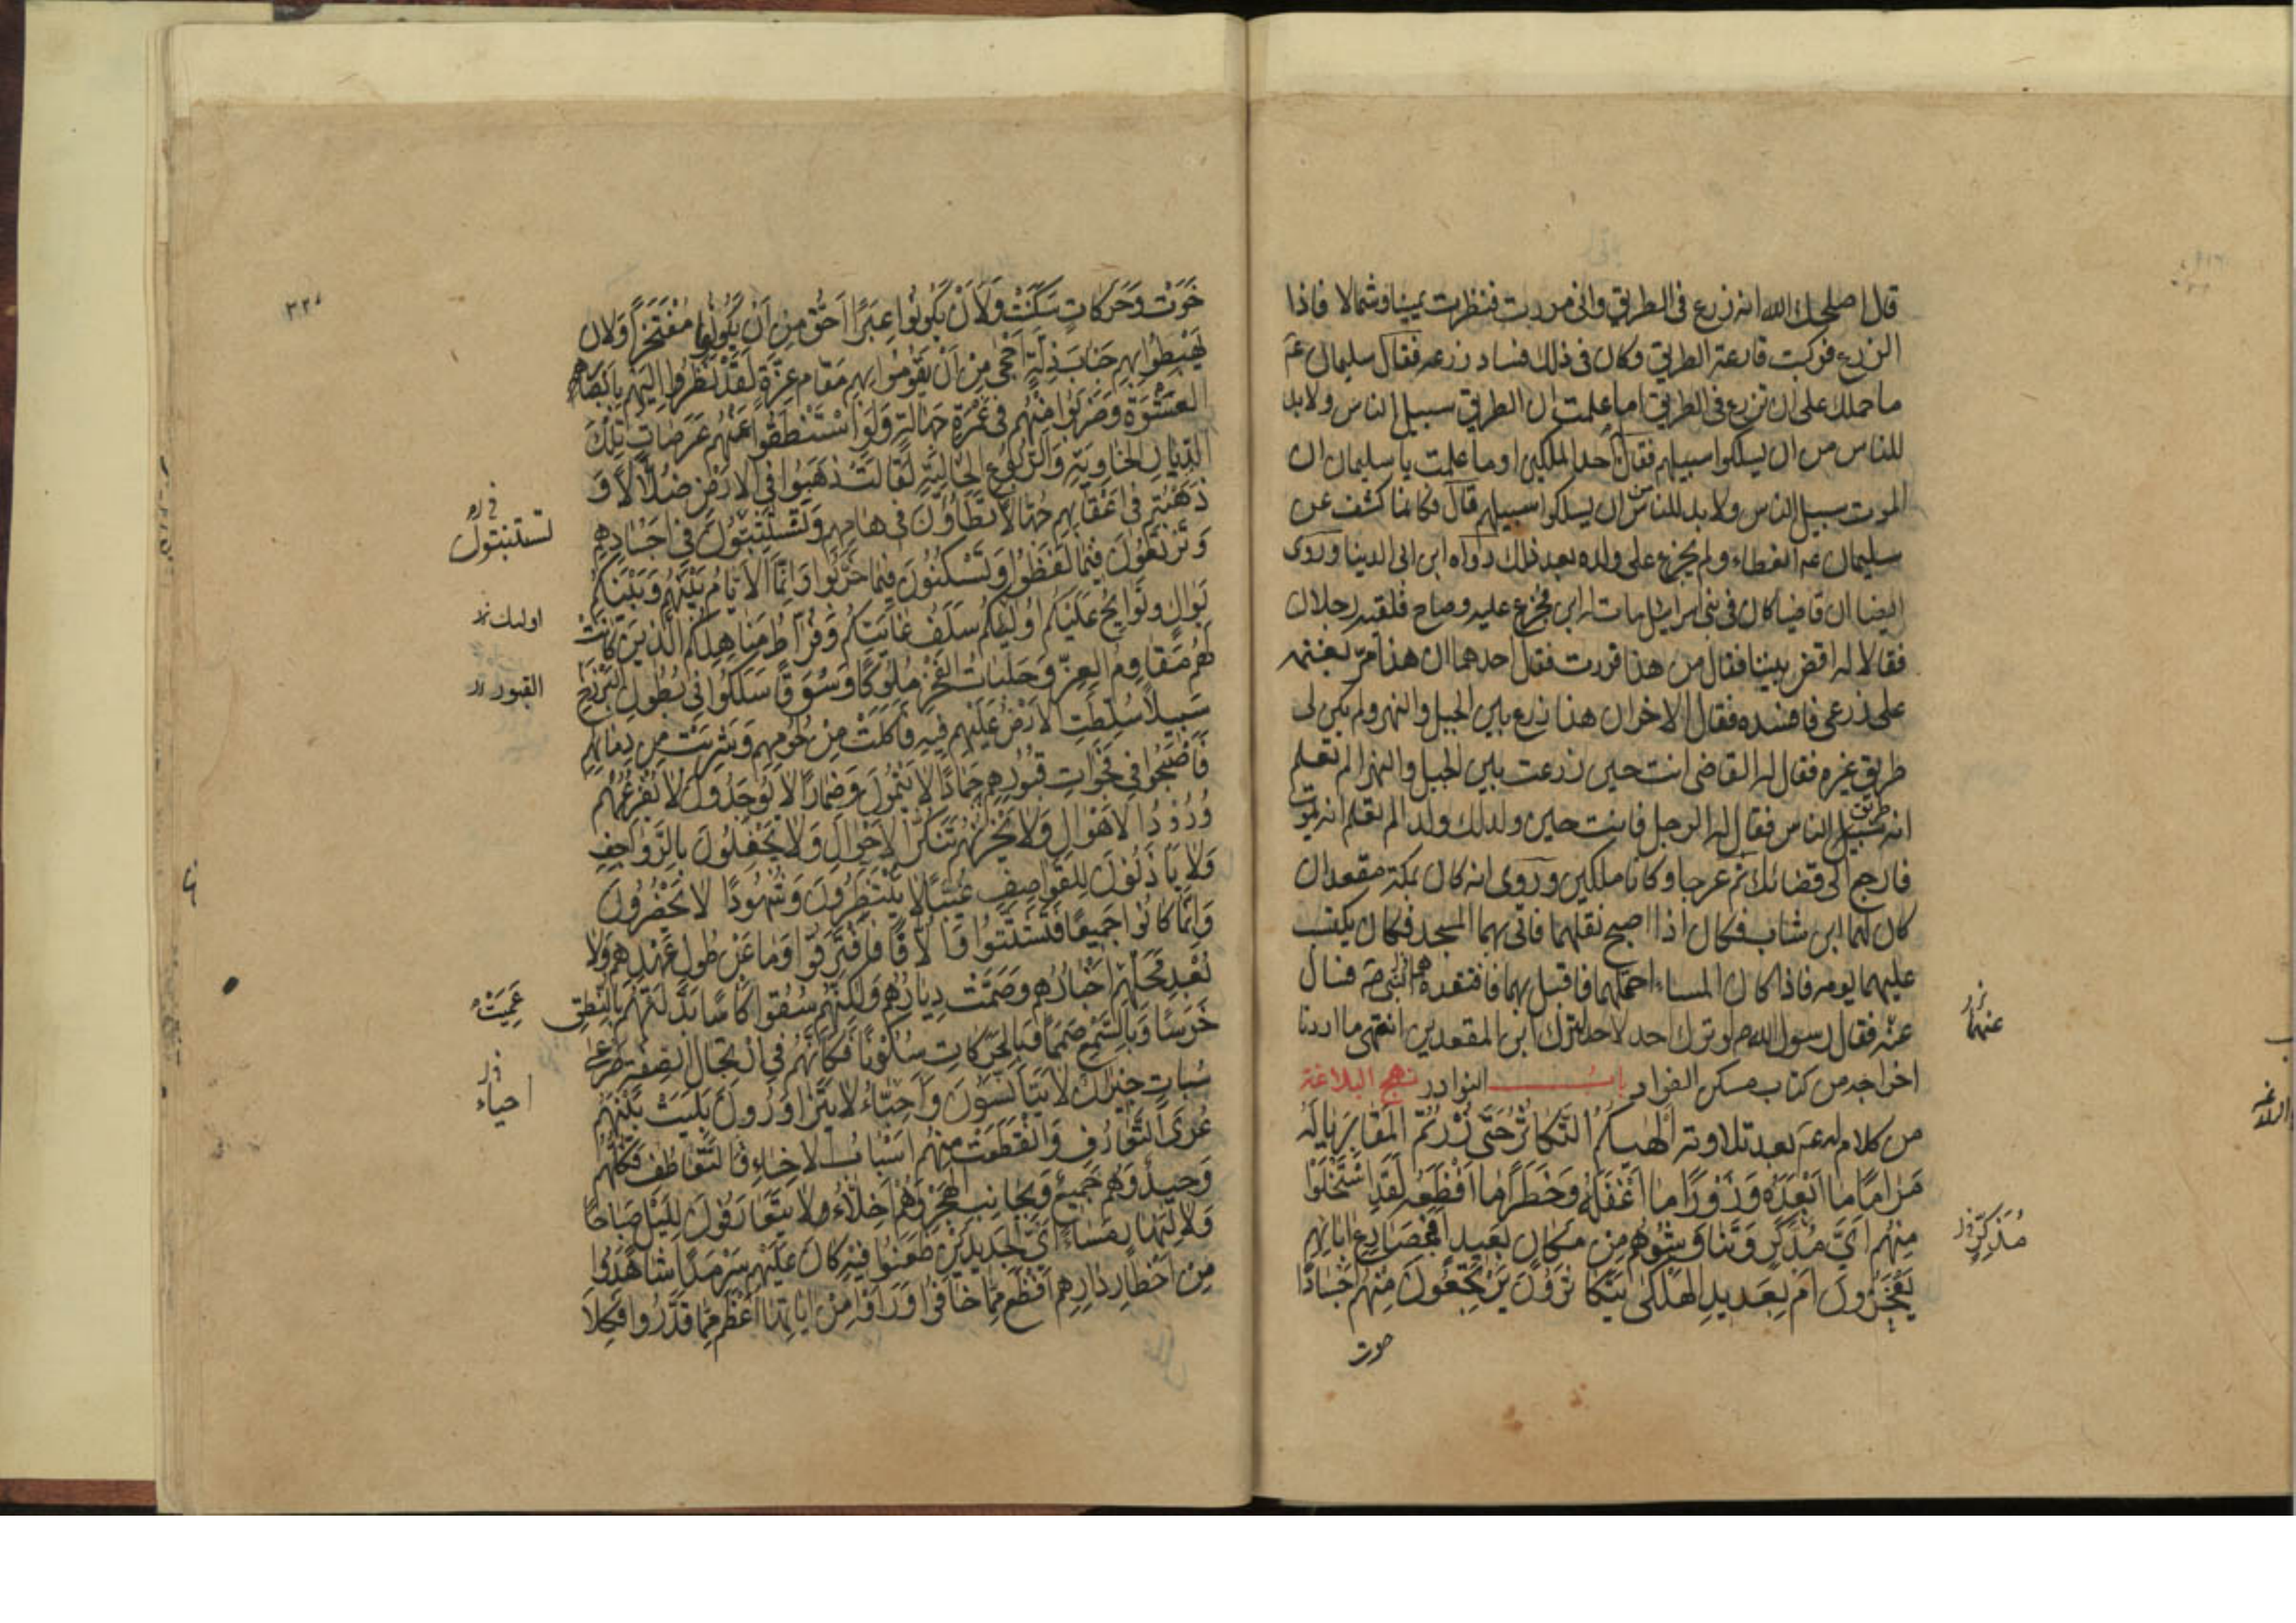 قال اصلحك الله انه زرع فى الطريق وانى مررت فنظرت يمينا وشمالا فاذا
الزرع فركبت قارعة الطريق وكان فى ذلك فساد زرعه فقال سليمان عم
ما حملك على ان تزرع فى الطريق اما علمت ان الطريق سبيل الناس ولا بد
للناس من ان يسلكوا سبيلهم فقال احد الملكين اوما علمت يا سليمان ان
الموت سبيل الناس ولا بد للناس من ان يسلكوا سبيلهم قال فكانما كشف عن
سليمان عم الغطاء ولم يجزع على ولده بعد ذلك رواه ابن ابى الدنيا وروى
ايضا ان قاضيا كان فى بنى اسرائيل مات له ابن فجزع عليه وصاح فلقيه رجلان
فقالا له اقض بيننا فقال من هذا فررت فقال احدهما ان هذا مر بغنمه
على زرعى فافسده فقال الاخر ان هذا زرع بين الجبل والنهر ولم يكن لى
طريق غيره فقال له القاضى انت حين زرعت بين الجبل والنهر الم تعلم
انه طريق الناس فقال له الرجل فانت حين ولد لك ولد الم تعلم انه يموت
فارجع الى قضائك ثم عرجا وكانا ملكين وروى انه كان بمكة مقعدان
كان لهما ابن شاب فكان اذا اصبح نقلهما فاتى بهما المسجد فكان يكتسب
عليهما يومه فاذا كان المساء احتملهما فاقبل بهما فافتقده النبى ص فسال
عنه فقال رسول الله ص لو ترك احد لاحد لترك ابن المقعدين انتهى ما اردنا
اخراجه من كتاب مسكن الفواد باب النوادر نهج البلاغة
من كلام له عم بعد تلاوته اَلْهٰيكُمُ التَّكاثُرُ حَتّى زُرْتُمُ الْمَقابِرَ يا لَهُ
مَراماً ما اَبْعَدَهُ وَزَوْراً ما اَغْفَلَهُ وَخَطَراً ما اَفْظَعَهُ لَقَدِ اسْتَخْلَوْا
مِنْهُمْ اَيَّ مُدَّكَرٍ وَتَناوَشُوهُمْ مِنْ مَكانٍ بَعيدٍ اَفَبِمَصارِعِ ابائِهِمْ
يَفْخَرُونَ اَمْ بِعَديدِ الْهَلْكى يَتَكاثَرُونَ يَرْتَجِعُونَ مِنْهُمْ اَجْساداً
خوت
عنهما
مُذَكِّرٍ
خَوَتْ وَحَرَكاتٍ سَكَنَتْ وَلَاَنْ يَكُونُوا عِبَراً اَحَقُّ مِنْ اَنْ يَكُونُوا مُفْتَخَراً وَلَاَنْ
يَهْبِطُوا بِهِمْ جَنابَ ذِلَّةٍ اَحْجى مِنْ اَنْ يَقُومُوا بِهِمْ مَقامَ عِزَّةٍ لَقَدْ نَظَرُوا اِلَيْهِمْ بِاَبْصارِ
الْعَشْوَةِ وَضَرَبُوا مِنْهُمْ فى غَمْرَةِ جَهالَةٍ وَلَوِ اسْتَنْطَقُوا عَنْهُمْ عَرَصاتِ تِلْكَ
الدِّيارِ الْخاوِيَةِ وَالرُّبُوعِ الْخالِيَةِ لَقالَتْ ذَهَبُوا فِى الْاَرْضِ ضُلّالاً وَ
ذَهَبْتُمْ فى اَعْقابِهِمْ جُهّالاً تَطَاُونَ فى هامِهِمْ وَتَسْتَثْبِتُونَ فى اَجْسادِهِمْ
وَتَرْتَعُونَ فيما لَفَظُوا وَتَسْكُنُونَ فيما خَرَّبُوا وَاِنَّمَا الْاَيّامُ بَيْنَهُمْ وَبَيْنَكُمْ
بَواكٍ وَنَوائِحُ عَلَيْكُمْ اُولئِكُمْ سَلَفُ غايَتِكُمْ وَفُرّاطُ مَناهِلِكُمُ الَّذينَ كانَتْ
لَهُمْ مَقاوِمُ الْعِزِّ وَحَلَباتُ الْفَخْرِ مُلُوكاً وَسُوَقاً سَلَكُوا فى بُطُونِ الْبَرْزَخِ
سَبيلاً سُلِّطَتِ الْاَرْضُ عَلَيْهِمْ فيهِ فَاَكَلَتْ مِنْ لُحُومِهِمْ وَشَرِبَتْ مِنْ دِمائِهِمْ
فَاَصْبَحُوا فى فَجَواتِ قُبُورِهِمْ جَماداً لا يَنْمُونَ وَضِماراً لا يُوجَدُونَ لا يُفْزِعُهُمْ
وُرُودُ الْاَهْوالِ وَلا يَحْزُنُهُمْ تَنَكُّرُ الْاَحْوالِ وَلا يَحْفِلُونَ بِالرَّواجِفِ
وَلا يَاْذَنُونَ لِلْقَواصِفِ غُيَّباً لا يُنْتَظَرُونَ وَشُهُوداً لا يَحْضُرُونَ
وَاِنَّما كانُوا جَميعاً فَتَشَتَّتُوا وَ اُلّافاً فَافْتَرَقُوا وَما عَنْ طُولِ عَهْدِهِمْ وَلا
بُعْدِ مَحَلِّهِمْ اَخْبارُهُمْ وَصَمَّتْ دِيارُهُمْ وَلكِنَّهُمْ سُقُوا كَاْساً بَدَّلَتْهُمْ بِالنُّطْقِ
خَرَساً وَبِالسَّمْعِ صَمَماً وَبِالْحَرَكاتِ سُكُوناً فَكَاَنَّهُمْ فِى ارْتِجالِ الصِّفَةِ صَرْعى
سُباتٍ جيرانٌ لا يَتَاَنَّسُونَ وَاَحِبّاءُ لا يَتَزاوَرُونَ بَلِيَتْ بَيْنَهُمْ
عُرَى التَّعارُفِ وَانْقَطَعَتْ مِنْهُمْ اَسْبابُ الْاِخاءِ فَالتَّعاطُفِ فَكُلُّهُمْ
وَحيدٌ وَهُمْ جَميعٌ وَبِجانِبِ الْهَجْرِ وَهُمْ اَخِلّاءُ لا يَتَعارَفُونَ لِلَيْلٍ صَباحاً
وَلا لِنَهارٍ مَساءً اَيُّ الْجَديدَيْنِ ظَعَنُوا فيهِ كانَ عَلَيْهِمْ سَرْمَداً شاهَدُوا
مِنْ اَخْطارِ دارِهِمْ اَفْظَعَ مِمّا خافُوا وَرَاَوْا مِنْ اياتِها اَعْظَمَ مِمّا قَدَّرُوا فَكِلَا
تستنبتون
اولئك
القبور
عَمِيَتْ
احياء